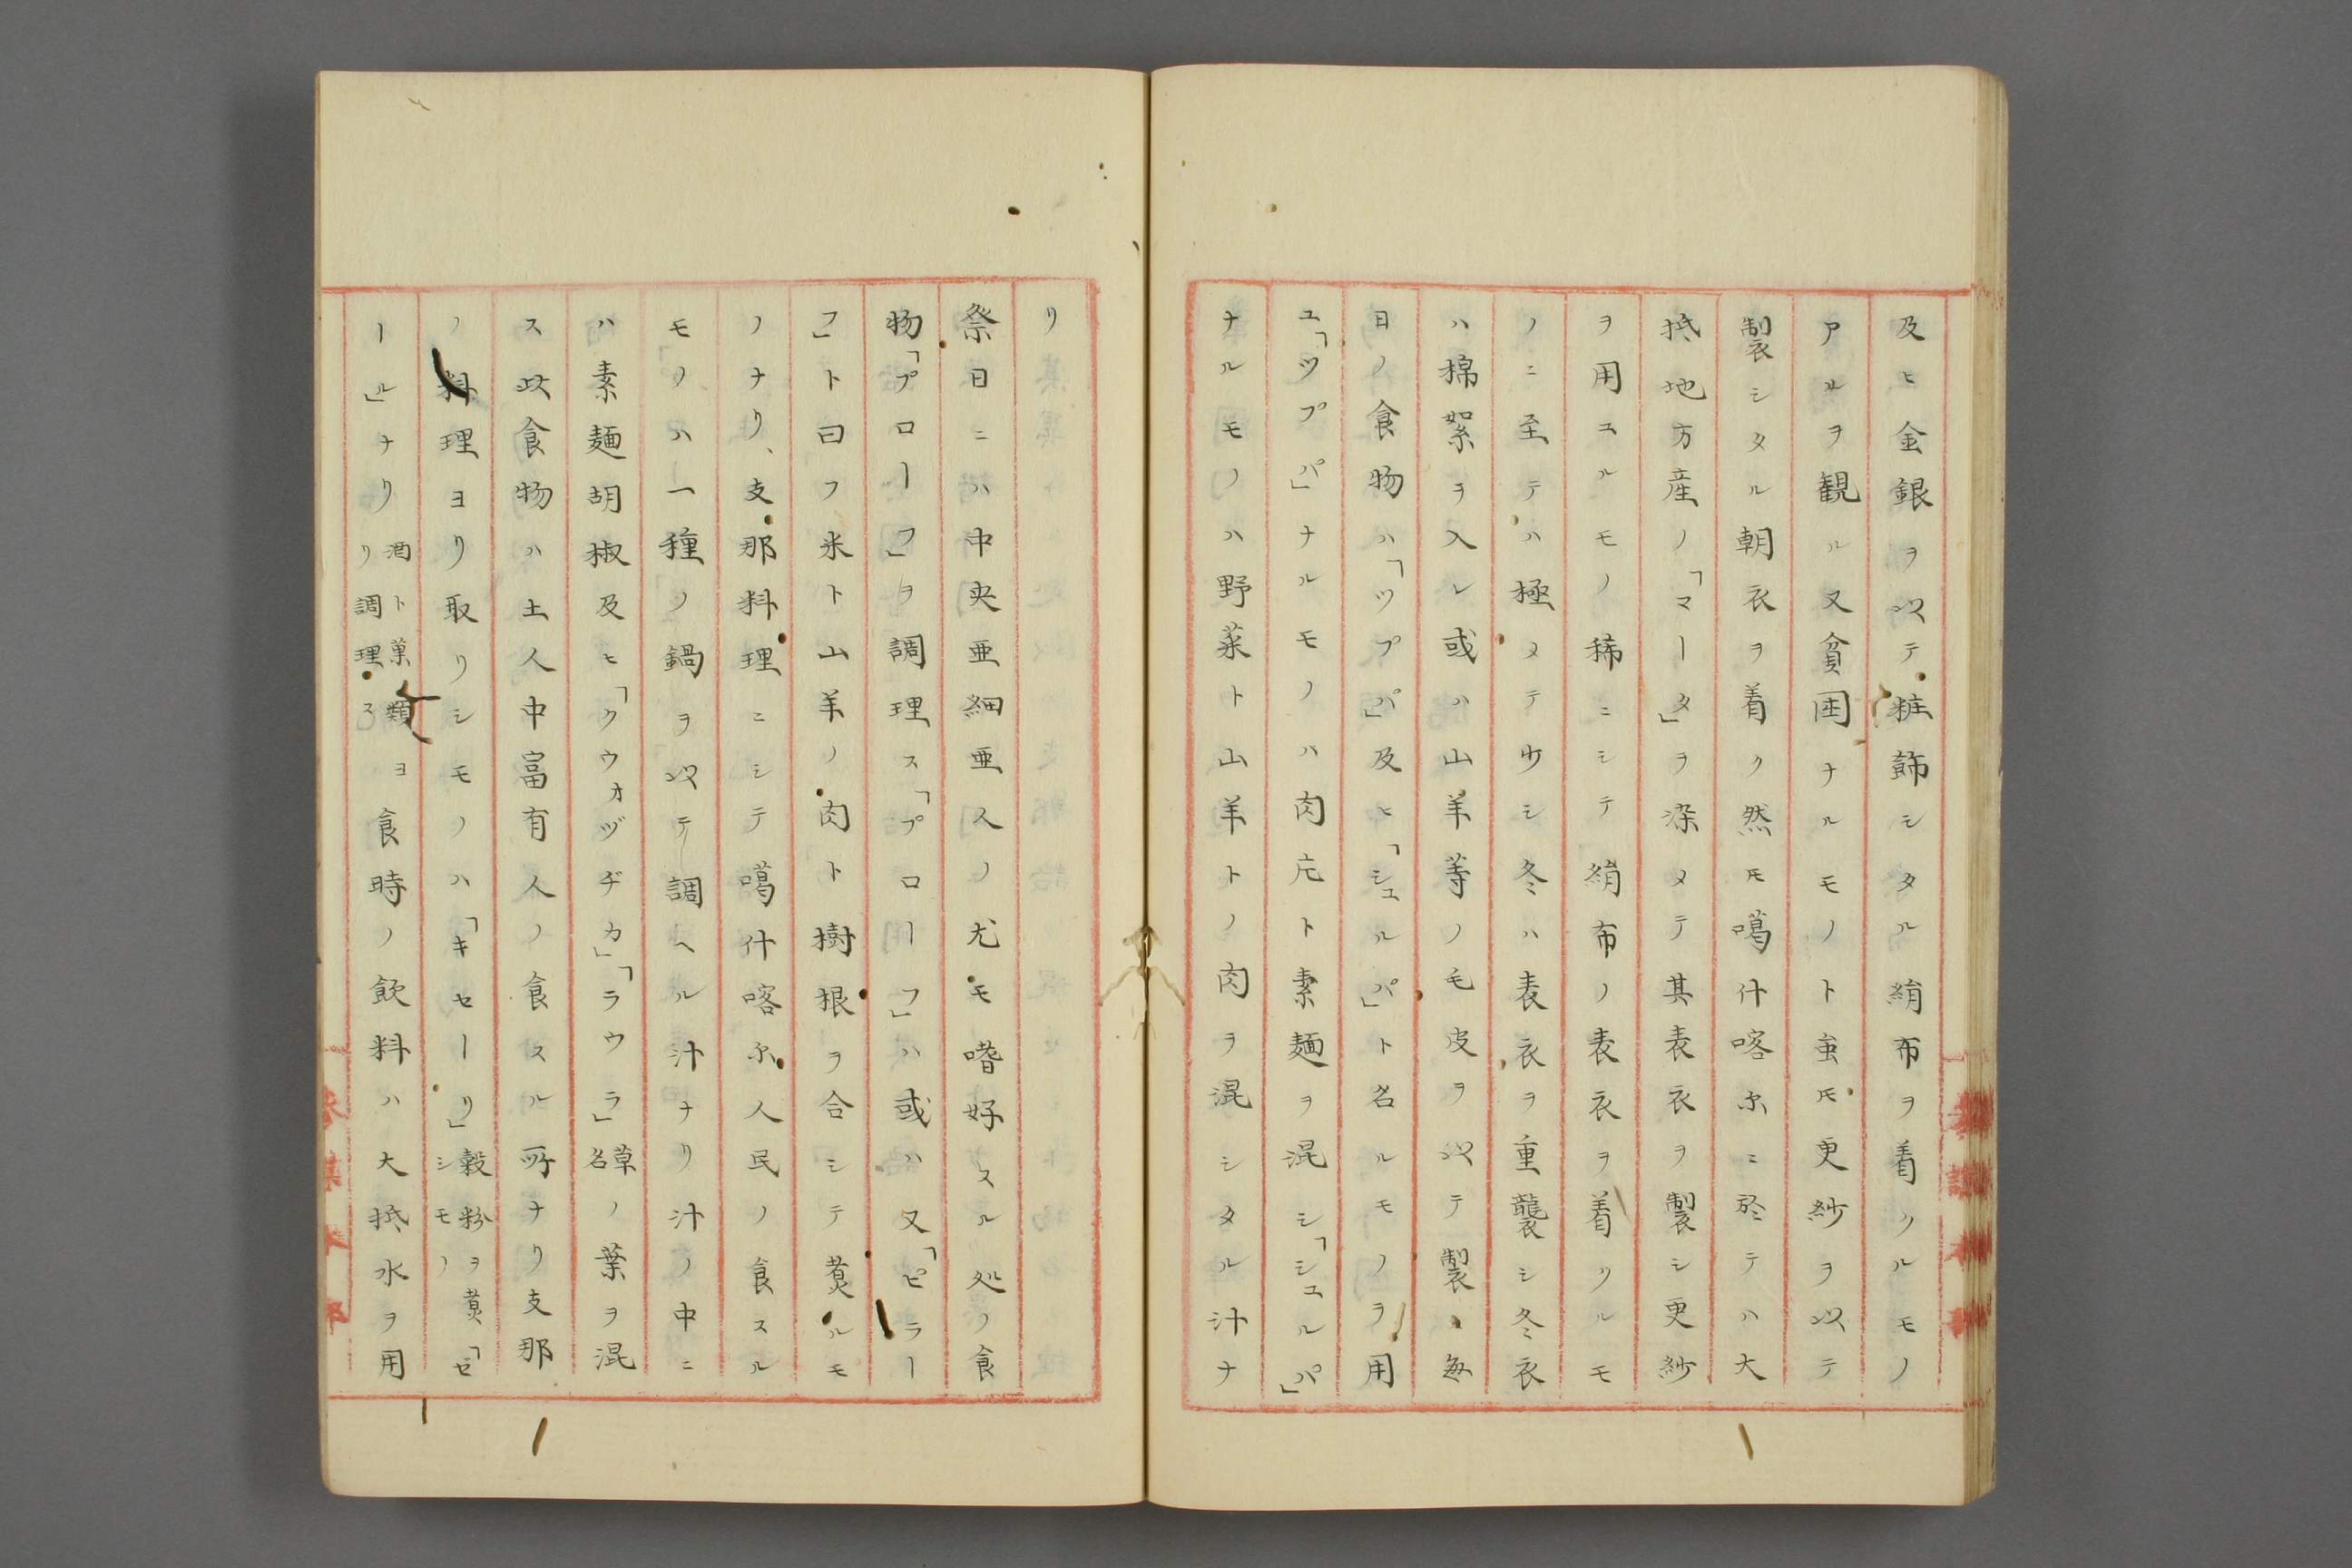 及ヒ金銀ヲ以テ粧飾シタル絹布ヲ着クルモノ
アルヲ観ル又貧困ナルモノト虽𪜈更紗ヲ以テ
製シタル朝衣ヲ着ク然𪜈噶什喀尓ニ於テハ大
抵地方産ノ「マータ」ヲ染メテ其表衣ヲ製シ更紗
ヲ用ユルモノ稀ニシテ絹布ノ表衣ヲ着クルモ
ノニ至テハ極メテ少シ冬ハ表衣ヲ重襲シ冬衣
ハ棉絮ヲ入レ或ハ山羊等ノ毛皮ヲ以テ製ス毎
日ノ食物ハ「ツプパ」及ヒ「シュルパ」ト名ルモノヲ用
ユ「ツプパ」ナルモノハ肉片ト素麺ヲ混シ「シユルパ」
ナルモノハ野菜ト山羊トノ肉ヲ混シタル汁ナ
リ
祭日ニハ中央亜細亜人ノ尤モ嗜好スル処ノ食
物「プローフ」ヲ調理ス「プローフ」ハ或ハ又「ピラー
フ」ト曰フ米ト山羊ノ肉ト樹根ヲ合シテ煮ルモ
ノナリ、支那料理ニシテ噶什喀尓人民ノ食スル
モノハ一種ノ鍋ヲ以テ調ヘル汁ナリ汁ノ中ニ
ハ素麺胡椒及ヒ「クウオヅヂカ」「ラウラ」草名ノ葉ヲ混
ス此食物ハ土人中富有人ノ食スル所ナリ支那
ノ料理ヨリ取リシモノハ「キセーリ」穀粉ヲ煮シモノ「ゼ
ール」ナリ酒ト菓類ヨリ調理ス食時ノ飲料ハ大抵水ヲ用